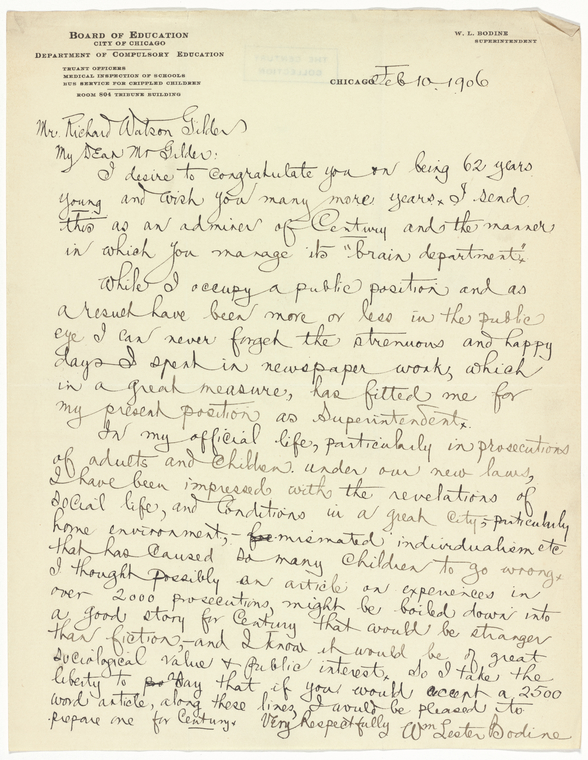 BOARD OF EDUCATION
CITY OF CHICAGO
DEPARTMENT OF COMPULSORY EDUCATION
TRUANT OFFICERS
MEDICAL INSPECTION OF SCHOOLS
BUS SERVICE FOR CRIPPLED CHILDREN
ROOM 804 TRIBUNE BUILDING
W. L. BODINE
SUPERINTENDENT
CHICAGO Feb 10 1906
Mr. Richard Watson Gilder
My Dear Mr Gilder:
I desire to congratulate you on being 62 years
young and wish you many more years. I send
this as an admirer of Century and the manner
in which you manage its "brain department".
While I occupy a public position and as
a result have been more or less in the public
eye I can never forget the strenuous and happy
days I spent in newspaper work, which
in a great measure, has fitted me for
my present position as Superintendent.
In my official life, particularly in prosecutions
of adults and children under our new laws,
I have been impressed with the revelations of
social life, and conditions in a great city; particularly
home environment, - mismated individualism etc
that has caused so many children to go wrong.
I thought possibly an article on experiences in
over 2000 prosecutions, might be boiled down into
a good story for Century that would be stranger
than fiction, - and I know it would be of great
sociological value & public interest. So I take the
liberty to say that if you would accept a 2500
word article, along these lines, I would be pleased to
prepare one for Century. Very Respectfully Wm Lester Bodine